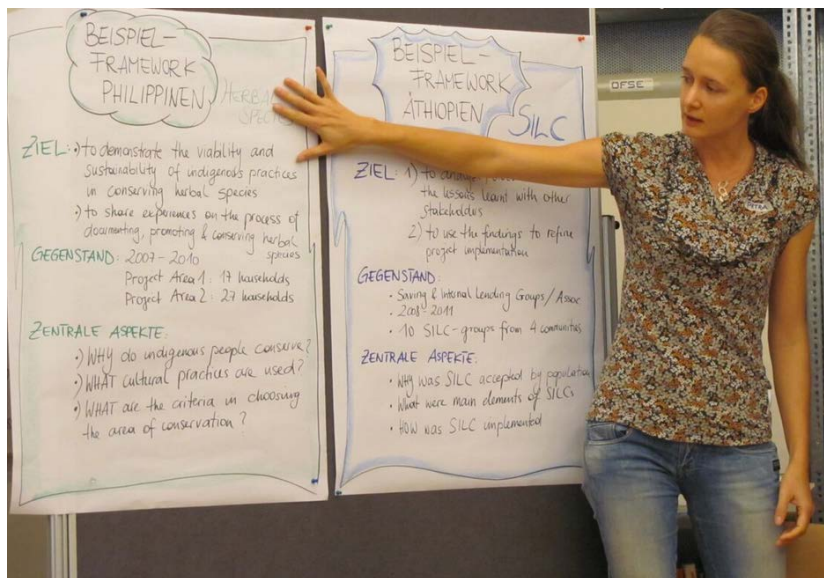 BEISPIEL-
FRAMEWORK
PHILIPPINEN
HERBAL
SPECIES
ZIEL: •) to demonstrate the viability and
sustainability of indigenous practices
in conserving herbal species
•) to share experiences on the process of
documenting, promoting & conserving herbal
species
GEGENSTAND: 2007-2010
Project Area 1: 17 households
Project Area 2: 27 households
ZENTRALE ASPEKTE:
•) WHY do indigenous people conserve?
•) WHAT cultural practices are used?
•) WHAT are the criteria in choosing
the area of conservation?
BEISPIEL-
FRAMEWORK
ÄTHIOPIEN
SILC
ZIEL: 1) to
the lessons learnt with other
stakeholders
2) to use the findings to refine
project implementation
GEGENSTAND:
• Saving & Internal Lending Groups/Assoc
• 2008-2011
• 10 SILC-groups from 4 communities
ZENTRALE ASPEKTE:
• WHY was SILC accepted by population
• What were main elements of SILCs
• HOW was SILC implemented
ÖFSE
PETRA